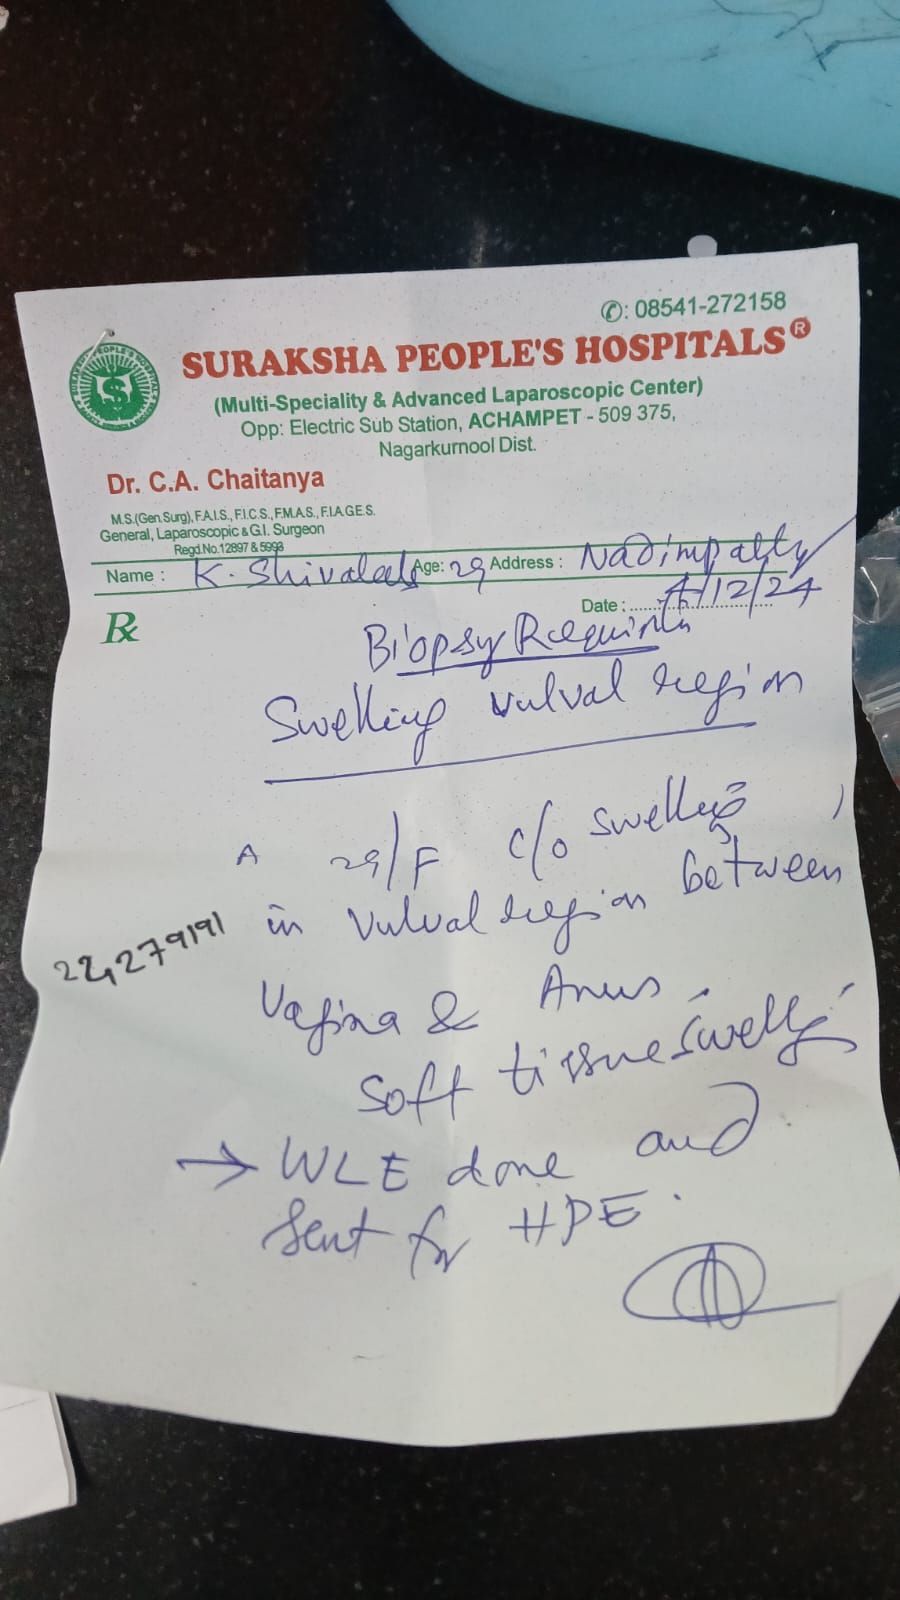 ✆: 08541-272158
SURAKSHA PEOPLE'S HOSPITALS®
(Multi-Speciality & Advanced Laparoscopic Center)
Opp: Electric Sub Station, ACHAMPET - 509 375,
Nagarkurnool Dist.
Dr. C.A. Chaitanya
M.S.(Gen.Surg), F.A.I.S., F.I.C.S., F.M.A.S., F.I.A.G.E.S.
General, Laparoscopic & G.I. Surgeon
Regd.No.12897 & 5998
Name : K. Age: 29 Address :
Date : /12/24
Rx
Biopsy
Swelling vulval region
A 29/F c/o swelling
in vulval region between
Vagina & Anus
soft tissue swelling
→ WLE done and
Sent for HPE.